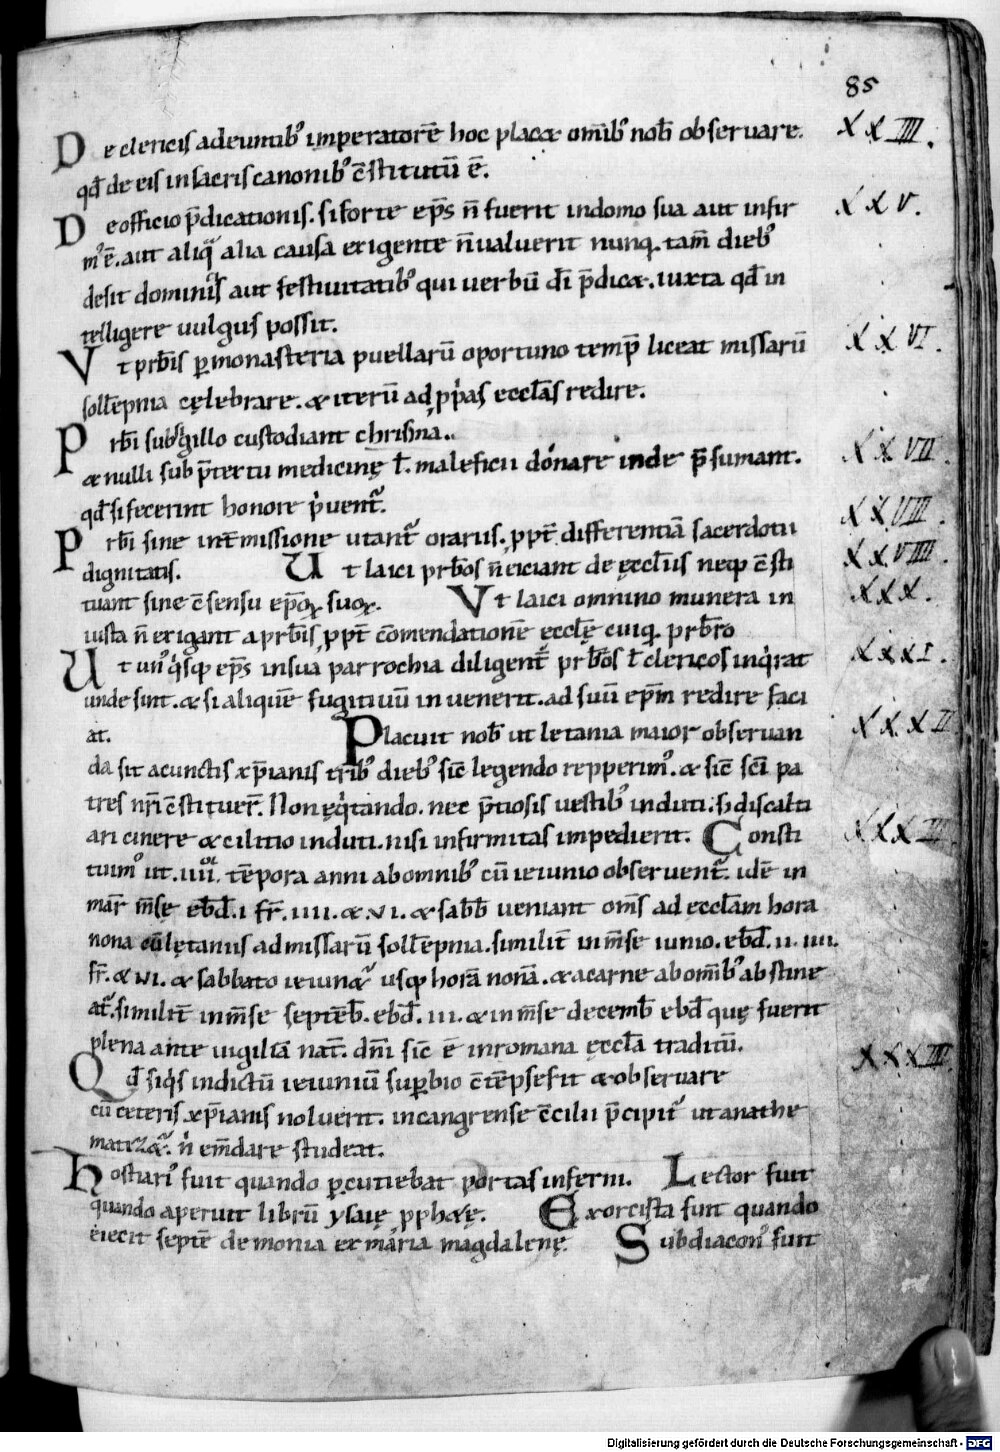 85
De clericis adeuntibꝰ imperatorē hoc placꝫ om̄ibꝰ nob̄ obseruare. XXIIII.
qd̄ de eis in sacris canonibꝰ c̄stitutū ē.
De officio p̄dicationis. si forte ep̄s n̄ fuerit in domo sua aut infir XXV.
mꝰ ē. aut aliq̄ alia causa exigente n̄ ualuerit nunq. tam̄ diebꝰ
desit dominicis aut festiuitatibꝰ qui uerbū dī p̄dicet. iuxta qd̄ in
telligere uulgus possit.
Vt prb̄is p monasteria puellarū oportuno temp̄ liceat missarū XXVI.
soll̄epnia cęlebrare. & iterū ad pp̄as eccl̄as redire.
Prb̄i sub sigillo custodiant chrisma..
& nulli sub p̄tertu medicinę ł maleficii donare inde p̄sumant. XXVII.
qd̄ si fecerint honore p̄uent.
Prb̄i sine int̄missione utant orariis. ppt̄ differentiā sacerdotii XXVIII.
dignitatis. Ut laici prb̄os n̄ eiciant de ęccl̄iis neq c̄sti XXVIIII.
tuant sine c̄sensu ep̄oꝝ suoꝝ. Vt laici omnino munera in XXX.
iusta n̄ exigant a prb̄is ppt̄ cōmendationē ęccl̄ę cuiq. prb̄ro
Ut unꝰqisq ep̄s in sua parrochia diligent̄ prb̄os ł clericos inqirat XXXI.
unde sint. & si aliquē fugitiuū inuenerit. ad suū ep̄m redire faci
at. Placuit nob̄ ut letania maior obseruan XXXII
da sit a cunctis xp̄ianis tribꝰ diebꝰ sic̄ legendo repperimꝰ. & sic̄ sc̄i pa
tres nr̄i c̄stituer̄. Non eqitando. nec p̄tiosis uestibꝰ induti. s; discalti
ati cinere & cilitio induti. nisi infirmitas impedierit. Consti XXXIII
tuimꝰ ut. iiii. tēpora anni ab omnibꝰ cū ieiunio obseruent. idē in
mar̄ m̄se ebd̄. i fr̄. iiii. & vi. & sabb̄ ueniant om̄s ad ecclam̄ hora
nona cū lętaniis ad missarū soll̄epnia. similit̄ in m̄se iunio. ebd̄. ii. iiii.
fr̄. & vi. & sabbato ieiunet usq horā nonā. & a carne ab om̄ibꝰ abstine
at. similit̄ in m̄se septēb̄. ebd̄. iii. & in m̄se decemb̄ ebd̄ quę fuerit
plena ante uigiliā nat̄. dn̄i sic̄ ē in romana ęccl̄a traditū.
Qd̄ siqis indictū ieiuniū supbio c̄tēpserit & obseruare XXXIIII.
cū ceteris xp̄ianis noluerit. in cangrense c̄cilii p̄cipit ut anathe
matizet. n̄ em̄dare studeat.
Hostiariꝰ fuit quando pcutiebat portas inferni. Lector fuit
quando aperuit librū ysaię pphetę. Exorcista fuit quando
eiecit septē demonia ex maria magdalenę. Subdiaconꝰ fuit
Digitalisierung gefördert durch die Deutsche Forschungsgemeinschaft - DFG